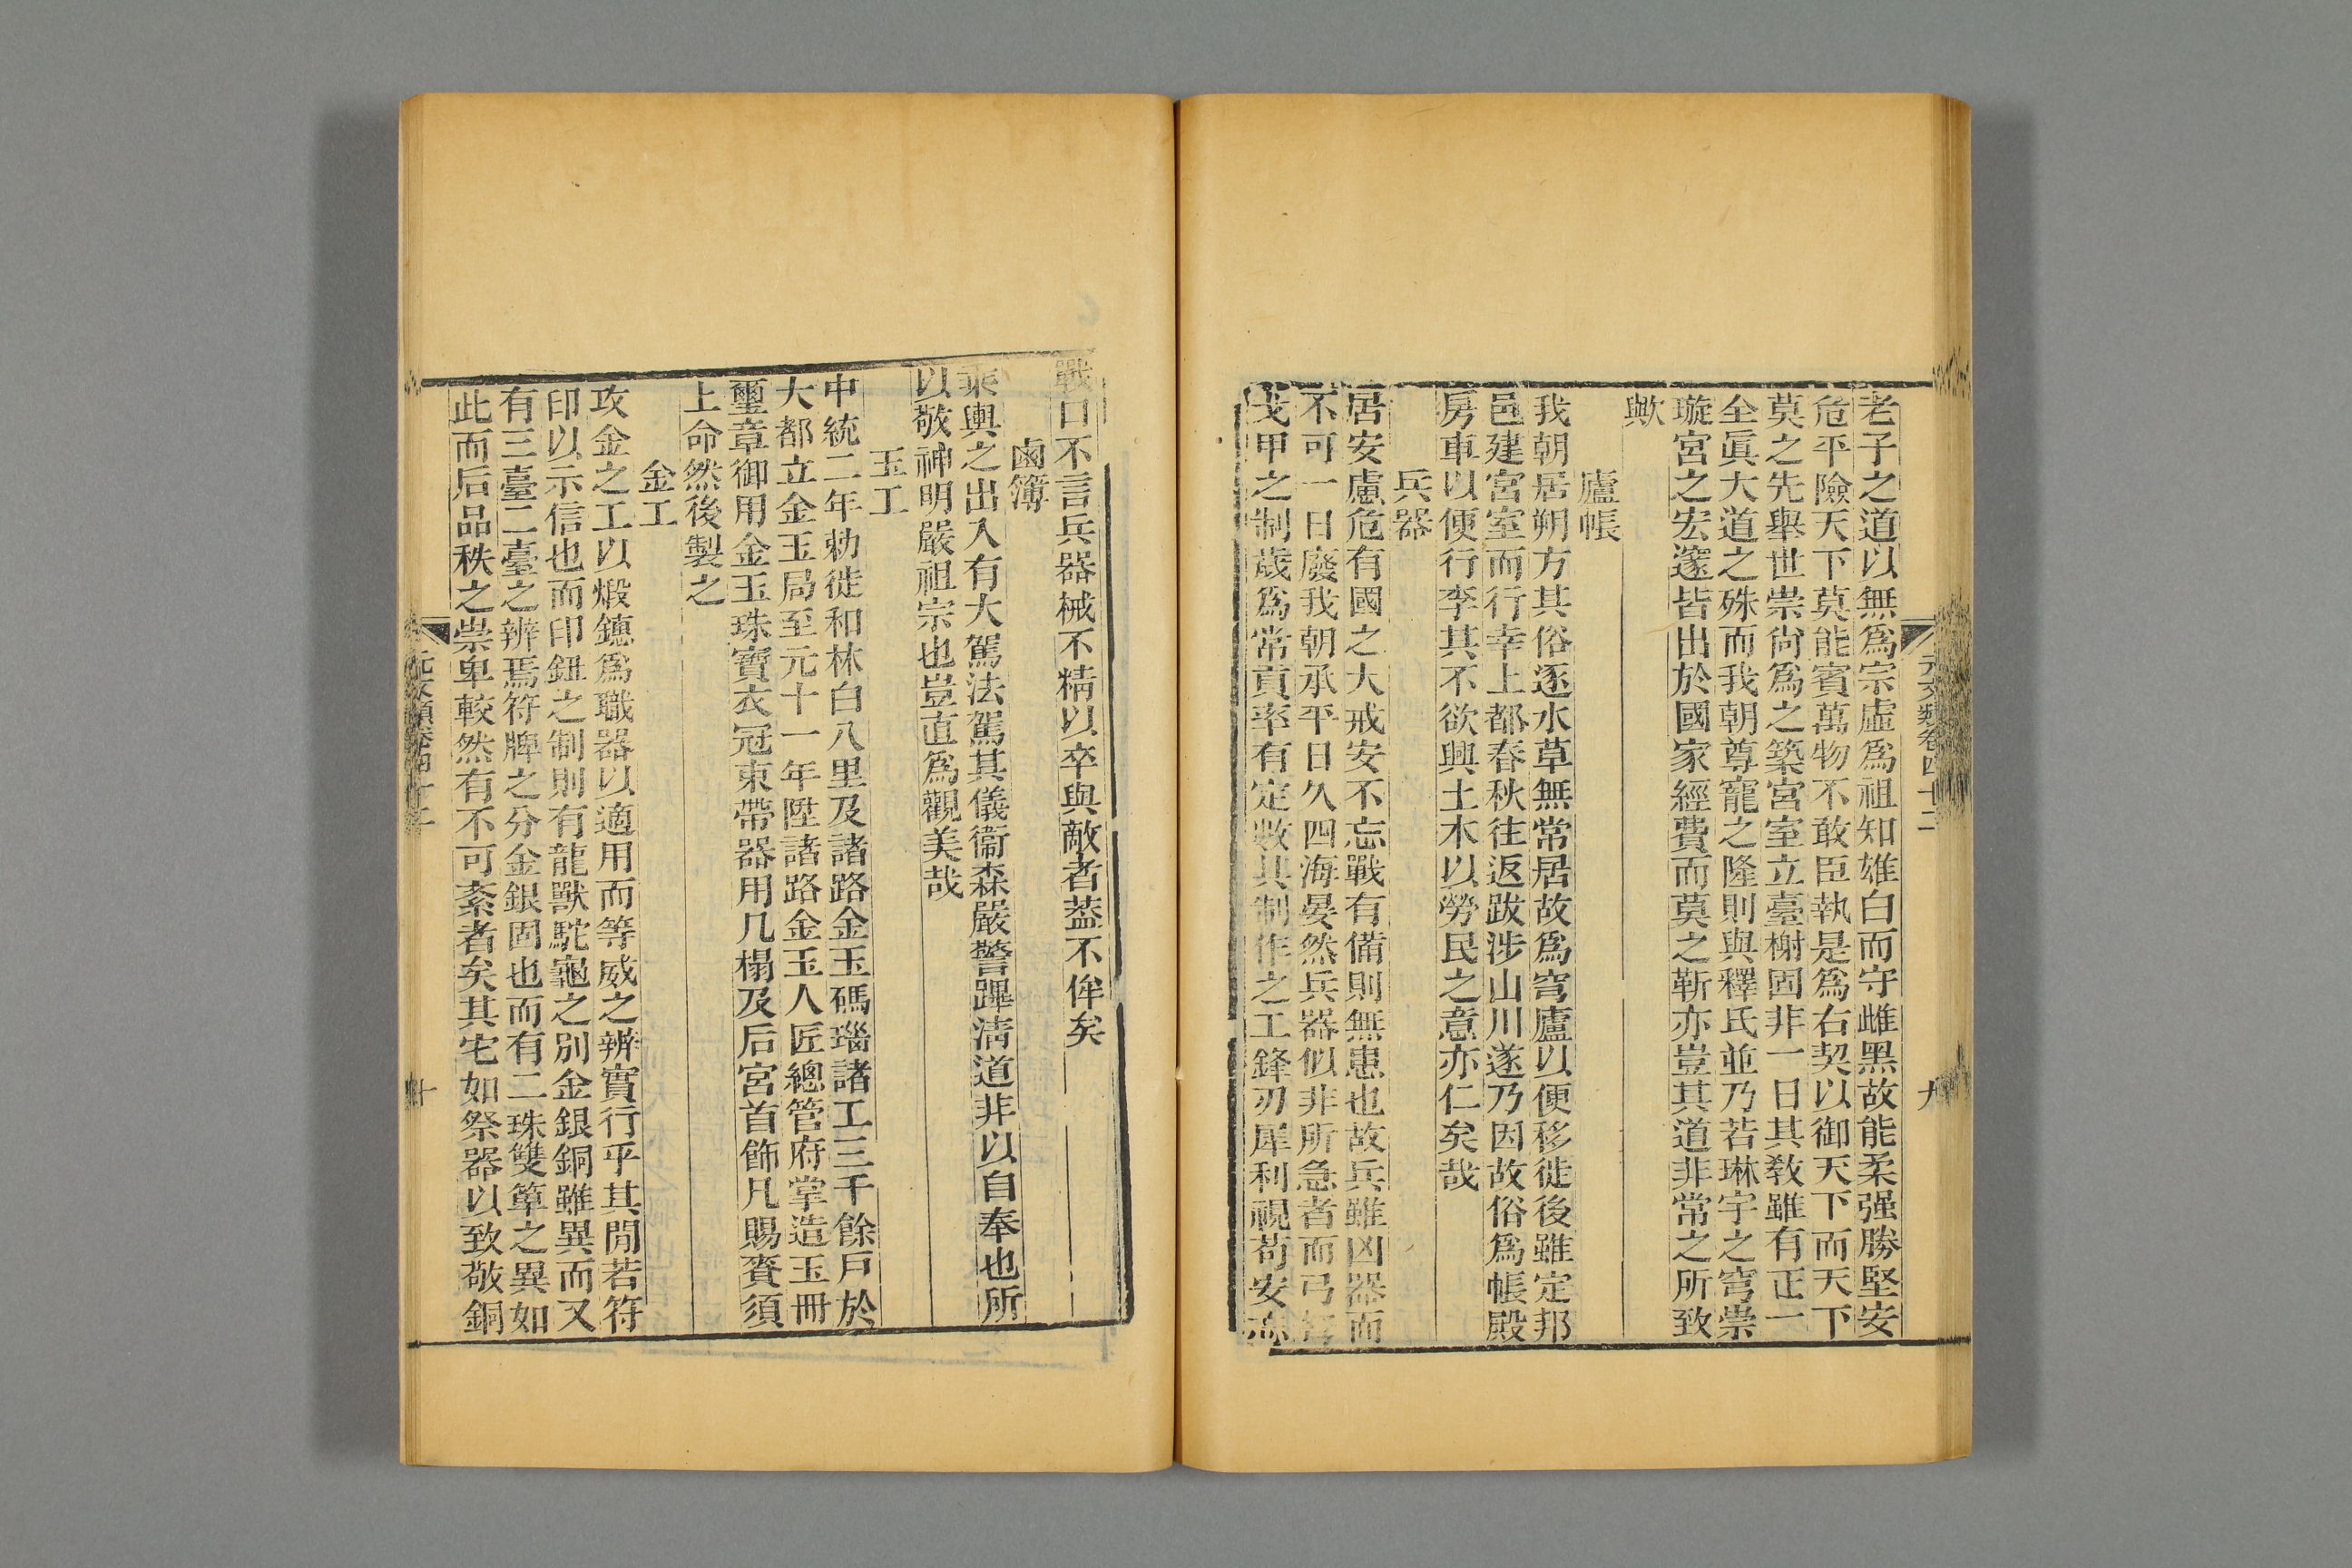 元文類卷四十二
九
老子之道以無爲宗虛爲祖知雄白而守雌黑故能柔强勝堅安
危平險天下莫能賓萬物不敢臣執是爲右契以御天下而天下
莫之先舉世崇尙爲之築宮室立臺榭固非一日其敎雖有正一
全眞大道之殊而我朝尊寵之隆則與釋氏並乃若琳宇之穹崇
璇宮之宏邃皆出於國家經費而莫之靳亦豈其道非常之所致
歟
廬帳
我朝居朔方其俗逐水草無常居故爲穹廬以便移徙後雖定邦
邑建宮室而行幸上都春秋往返跋涉山川遂乃因故俗爲帳殿
房車以便行李其不欲興土木以勞民之意亦仁矣哉
兵器
居安慮危有國之大戒安不忘戰有備則無患也故兵雖凶器而
不可一日廢我朝承平日久四海晏然兵器似非所急者而弓矢
戈甲之制歲爲常貢率有定數其制作之工鋒刃犀利視苟安忘
戰口不言兵器械不精以卒與敵者葢不侔矣
鹵簿
乘輿之出入有大駕法駕其儀衞森嚴警蹕淸道非以自奉也所
以敬神明嚴祖宗也豈直爲觀美哉
玉工
中統二年勅徙和林白八里及諸路金玉碼瑙諸工三千餘戶於
大都立金玉局至元十一年陞諸路金玉人匠總管府掌造玉冊
璽章御用金玉珠寶衣冠束帶器用几榻及后宮首飾凡賜賚須
上命然後製之
金工
攻金之工以煅鐻爲職器以適用而等威之辨實行乎其閒若符
印以示信也而印鈕之制則有龍獸駝龜之別金銀銅雖異而又
有三臺二臺之辨焉符牌之分金銀固也而有二珠雙單之異如
此而后品秩之崇卑較然有不可紊者矣其宅如祭器以致敬銅
元文類卷四十二
十